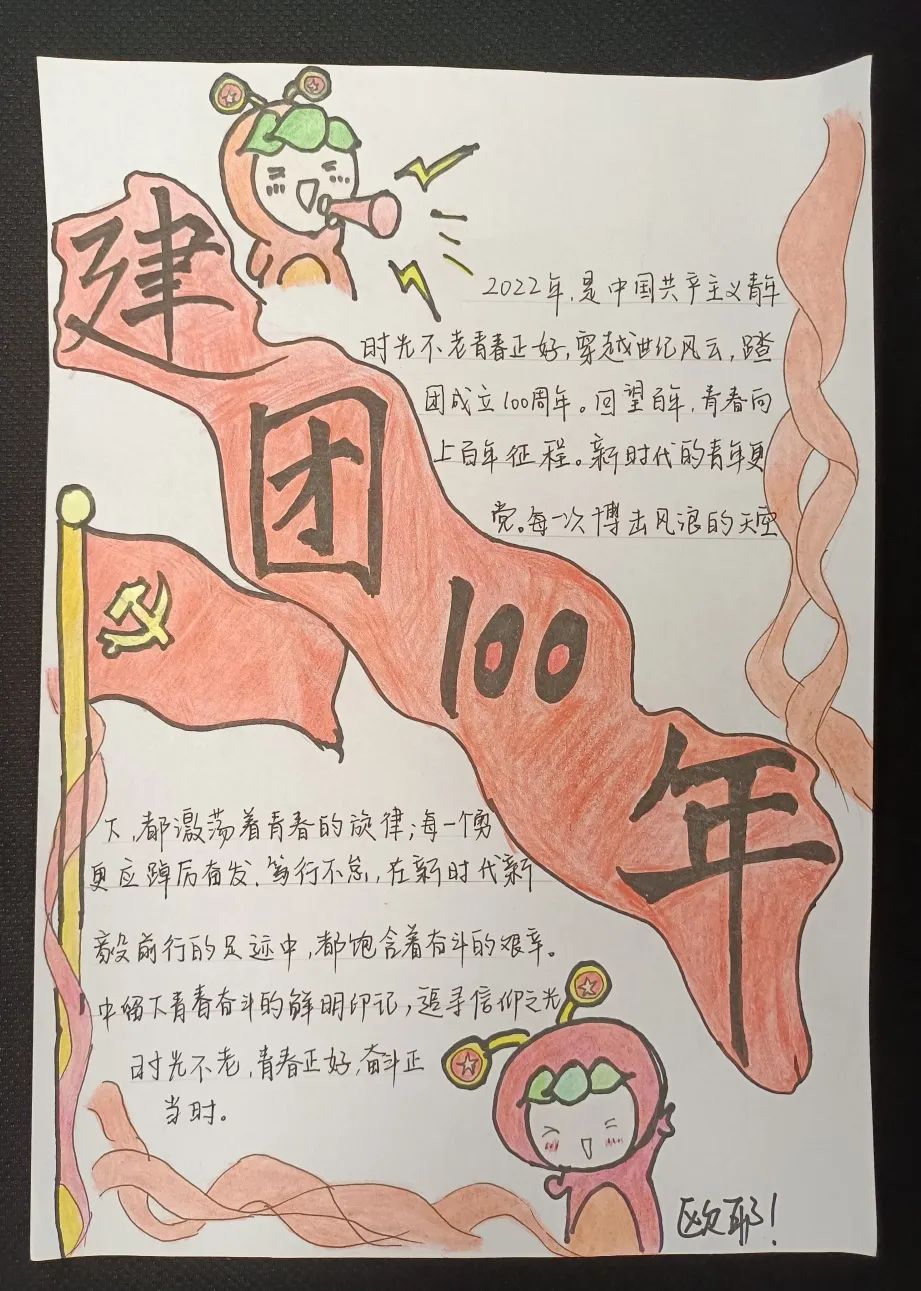 建团100年
2022年，是中国共产主义青年
时光不老青春正好，穿越世纪风云，踏
团成立100周年。回望百年，青春向
上百年征程。新时代的青年更
党。每一次博击风浪的天空
下，都激荡着青春的旋律；每一个勇
更应踔厉奋发、笃行不怠，在新时代新
毅前行的足迹中，都饱含着奋斗的艰辛。
中留下青春奋斗的鲜明印记，追寻信仰之光
时光不老，青春正好，奋斗正
当时。
欧耶！